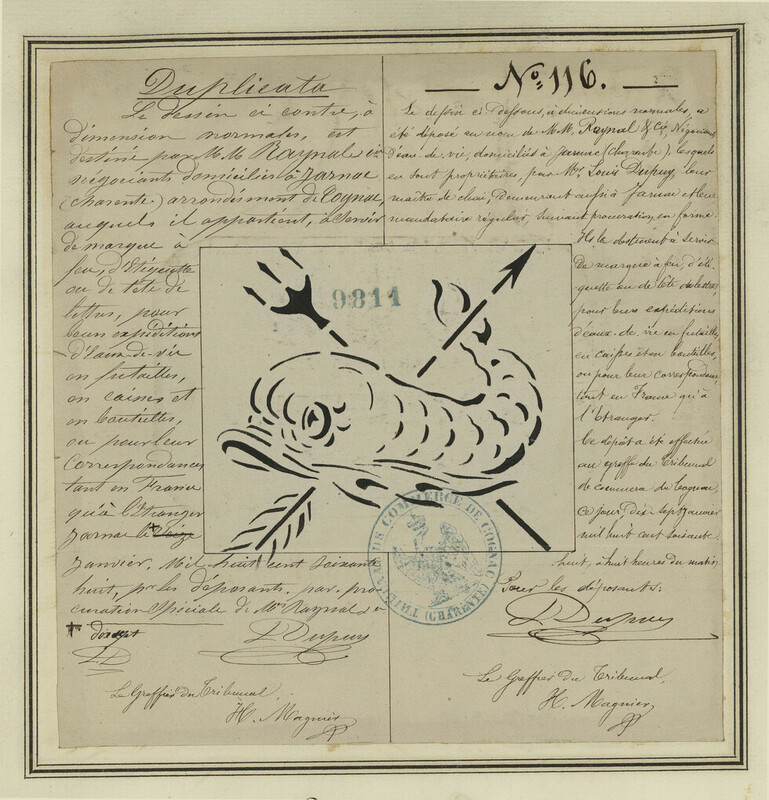 Duplicata
Le dessin ci contre, à
dimension normales, est
destiné par M.M. Raynal & Cie
négociants domiciliés à Jarnac
(charente) arrondissement de Cognac,
auquels il appartient, à servir
de marque à
feu, d'étiquette
ou de tête de
lettres, pour
leurs expéditions
d'Eaux-de-vie
en futailles,
en caisses et
en bouteilles,
ou pour leur
Correspondances
tant en France
qu'à l'Etranger
Jarnac le
Janvier, Mil huit cent soixante
huit, pr les déposants, par pro
curation Spéciale de Mrs Raynal &
L. Dupuy
LD
Le Greffier du Tribunal,
H. Magnier
No. 116.
Le dessin ci dessous, à dimensions normales, a
été déposé au nom de M.M. Raynal & Co, Négociants
d'eau-de-vie, domiciliés à Jarnac (Charente), lesquels
en sont propriétaires, par Mr Louis Dupuy, leur
maître de chai, demeurant aussi à Jarnac et leur
mandataire régulier, suivant procuration en forme.
Ils le destinent à servir
de marque à feu, d'éti-
quette ou de tête de lettres,
pour leurs expéditions
d'eaux-de-vie en futailles,
en caisses et en bouteilles,
ou pour leur correspondance,
tant en France qu'à
l'Etranger.
Ce dépôt a été effectué
au greffe du Tribunal
de commerce de Cognac,
ce jour, dix sept Janvier
mil huit cent soixante
huit, à huit heures du matin
Pour les déposants:
L. Dupuy
Le Greffier du Tribunal,
H. Magnier
9811
TRIBUNAL DE COMMERCE DE COGNAC
(CHARENTE)